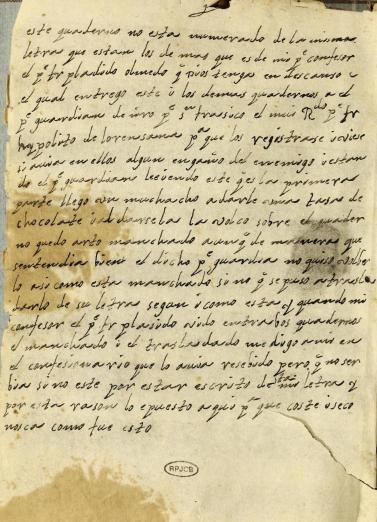 este quaderno no esta numerado de la misma
letra que estan los de mas que es de mi pe confesor
el pe fr plasido olmedo q dios tenga en descanso i
el qual entrego este i los demas quadernos a el
pe guardian de nro pe sn fransisco el mui Rdo pe fr
hypolito de lorensana pa que los registrase i viese
si avia en ellos algun engaño del enemigo i estan
do el pe guardian leiendo este q es la primera
parte llego un muchacho a darle una tasa de
chocolate i al darsela la volco sobre el quader
no quedo arto manchado aunq de manera que
se entendia bien el dicho pe guardian no quiso volber
lo asi como esta manchado si no q se puso a trasla
darlo de su letra segun i como esta q quando mi
confesor el pe fr plasido vido entrabos quadernos
el manchado i el trasladado me digo a mi en
el confesionario que lo avia resebido pero q no ser
bia si no este por estar escrito de mi letra q
por esta rason lo e puesto aqui pa que coste i seco
nosca como fue esto
RPJCB